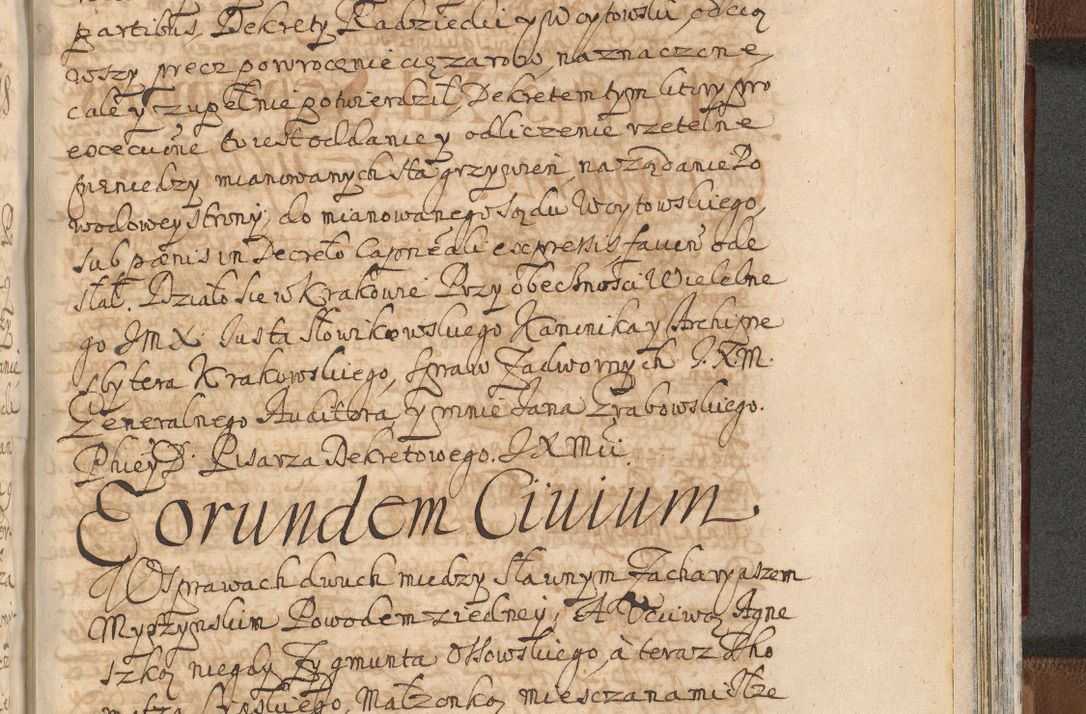 partibus, Dekrety Radzieckie y Woytowskie, odcią
wszy precz powrocenie ciężarow, naznaczone,
cale y zupełnie potwierdził, Dekretem tym ktory pro
execuōne to iest oddanie y odliczenie rzetelne
pieniędzy mianowanych sta grzywien, na ządanie Po
wodowey strony, do mianowanego Sądu Woytowskiego,
sub pænis in Decreto Capnēali expressis faueñ ode
słał. Działo się w Krakowie Przy obecności Wielebne
go JMX Justa Słowikowskiego Kanonika y Archipre
sbytera Krakowskiego, spraw Zadwornych J.X.M.
Generalnego Auditora, y mnie Jana Grabowskiego.
Phiey D. Pisarza Dekretowego. JXMci.
Eorundem Ciuium
W Sprawach dwuch między Sławnym Zacharyaszem
Mypszynskim Powodem z iedney, A Vczciwą Agne
szką niegdy Zygmunta Ossowskiego, à teraz Tho
Małzonką mieszczanami Stze